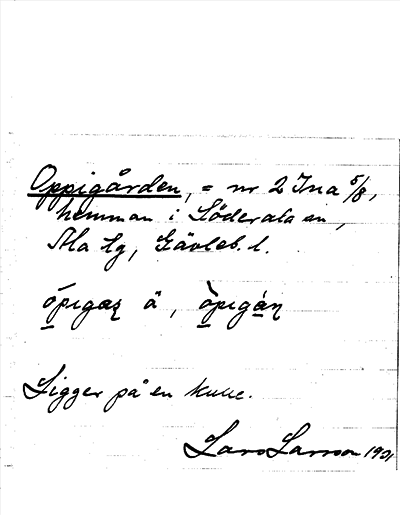 Oppigården, = nr 2 Ina 5/8,
hemman i Söderala sn,
Ala tg, Gävleb. l.
ä
Ligger på en kulle.
Lars Larsson 1901